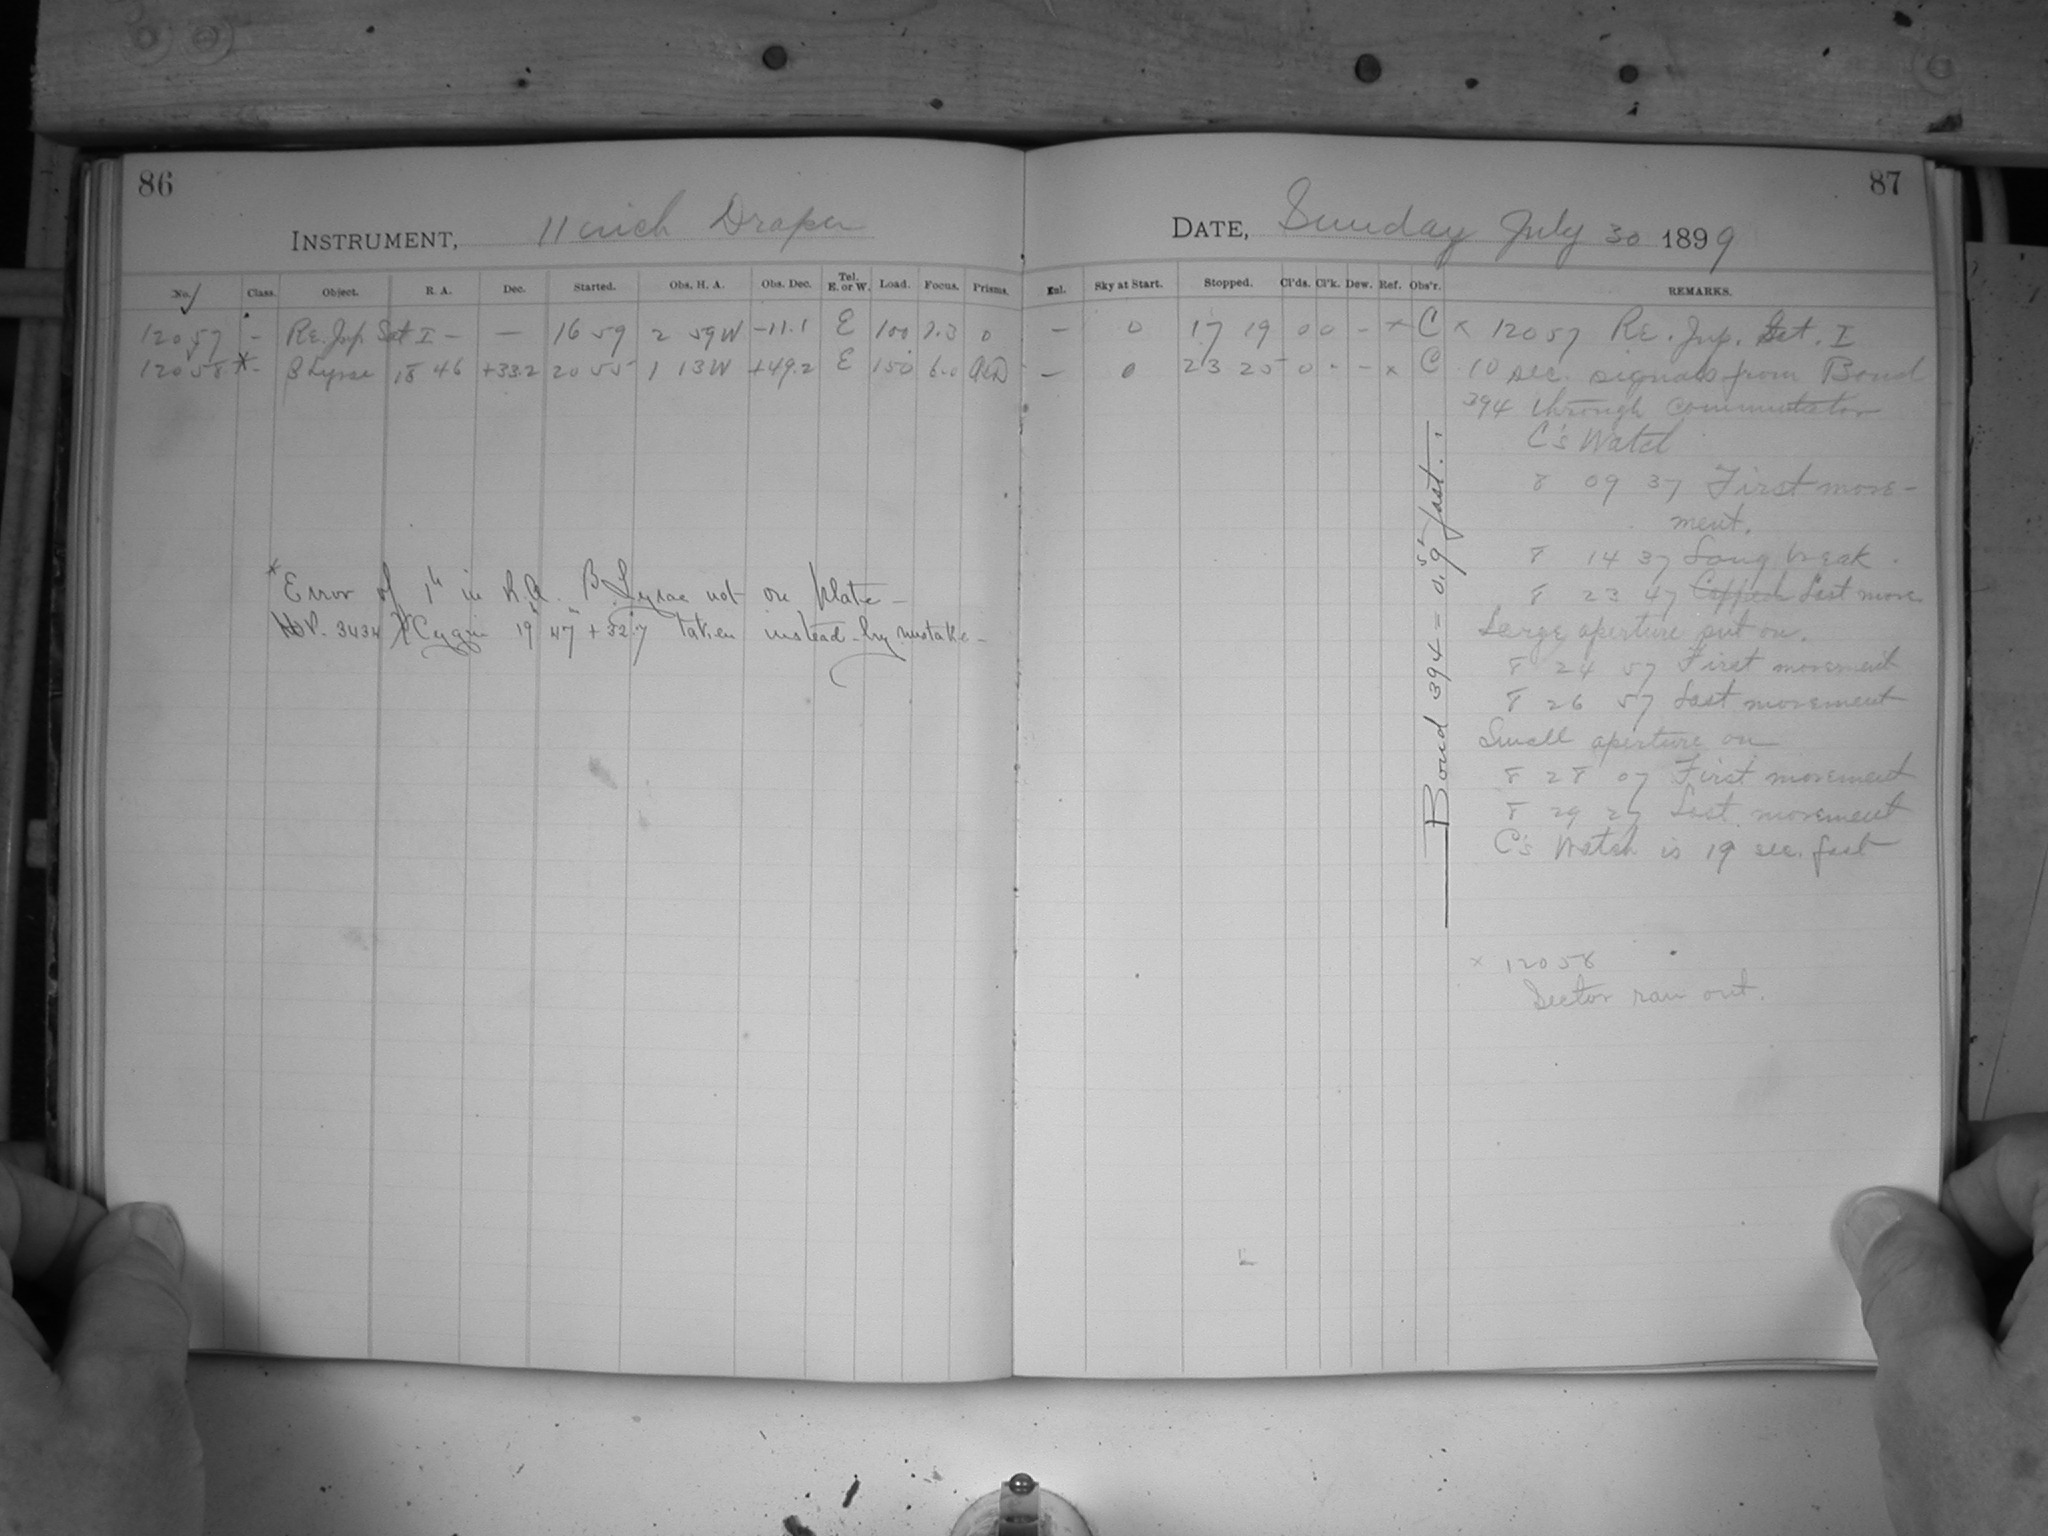 86
INSTRUMENT, 11 inch Draper
No. Class. Object. R. A. Dec. Started. Obs. H. A. Obs. Dec. Tel. E. or W. Load. Focus. Prisms.
12057 - Re. Jup. Sat I - — 16 59 2 59W -11.1 E 100 7.3 0
12058* - β Lyrae 18 46 +33.2 20 55 1 13W +49.2 E 150 6.0
* Error of 1h in R.A. β Lyrae not on plate -
3434 Cygni 19h 47m + 32.7 taken instead - by mistake -
87
DATE, Sunday July 30 1899
Enl. Sky at Start. Stopped. Cl'ds. Cl'k. Dew. Ref. Obs'r. REMARKS.
— 0 17 19 0 0 - x C x 12057 Re. Jup. Sat. I
— 0 23 25 0 - - x C 10 sec. signals from Bond
394 through commutator
C's Watch
8 09 37 First move-
ment.
8 14 37 Long break.
8 23 47 Capped Last move
Large aperture put on.
8 24 57 First movement
8 26 57 Last movement
Small aperture on
8 28 07 First movement
8 29 27 Last movement
C's Watch is 19 sec. fast
Bond 394 = 0.9s fast.
x 12058
Sector ran out.